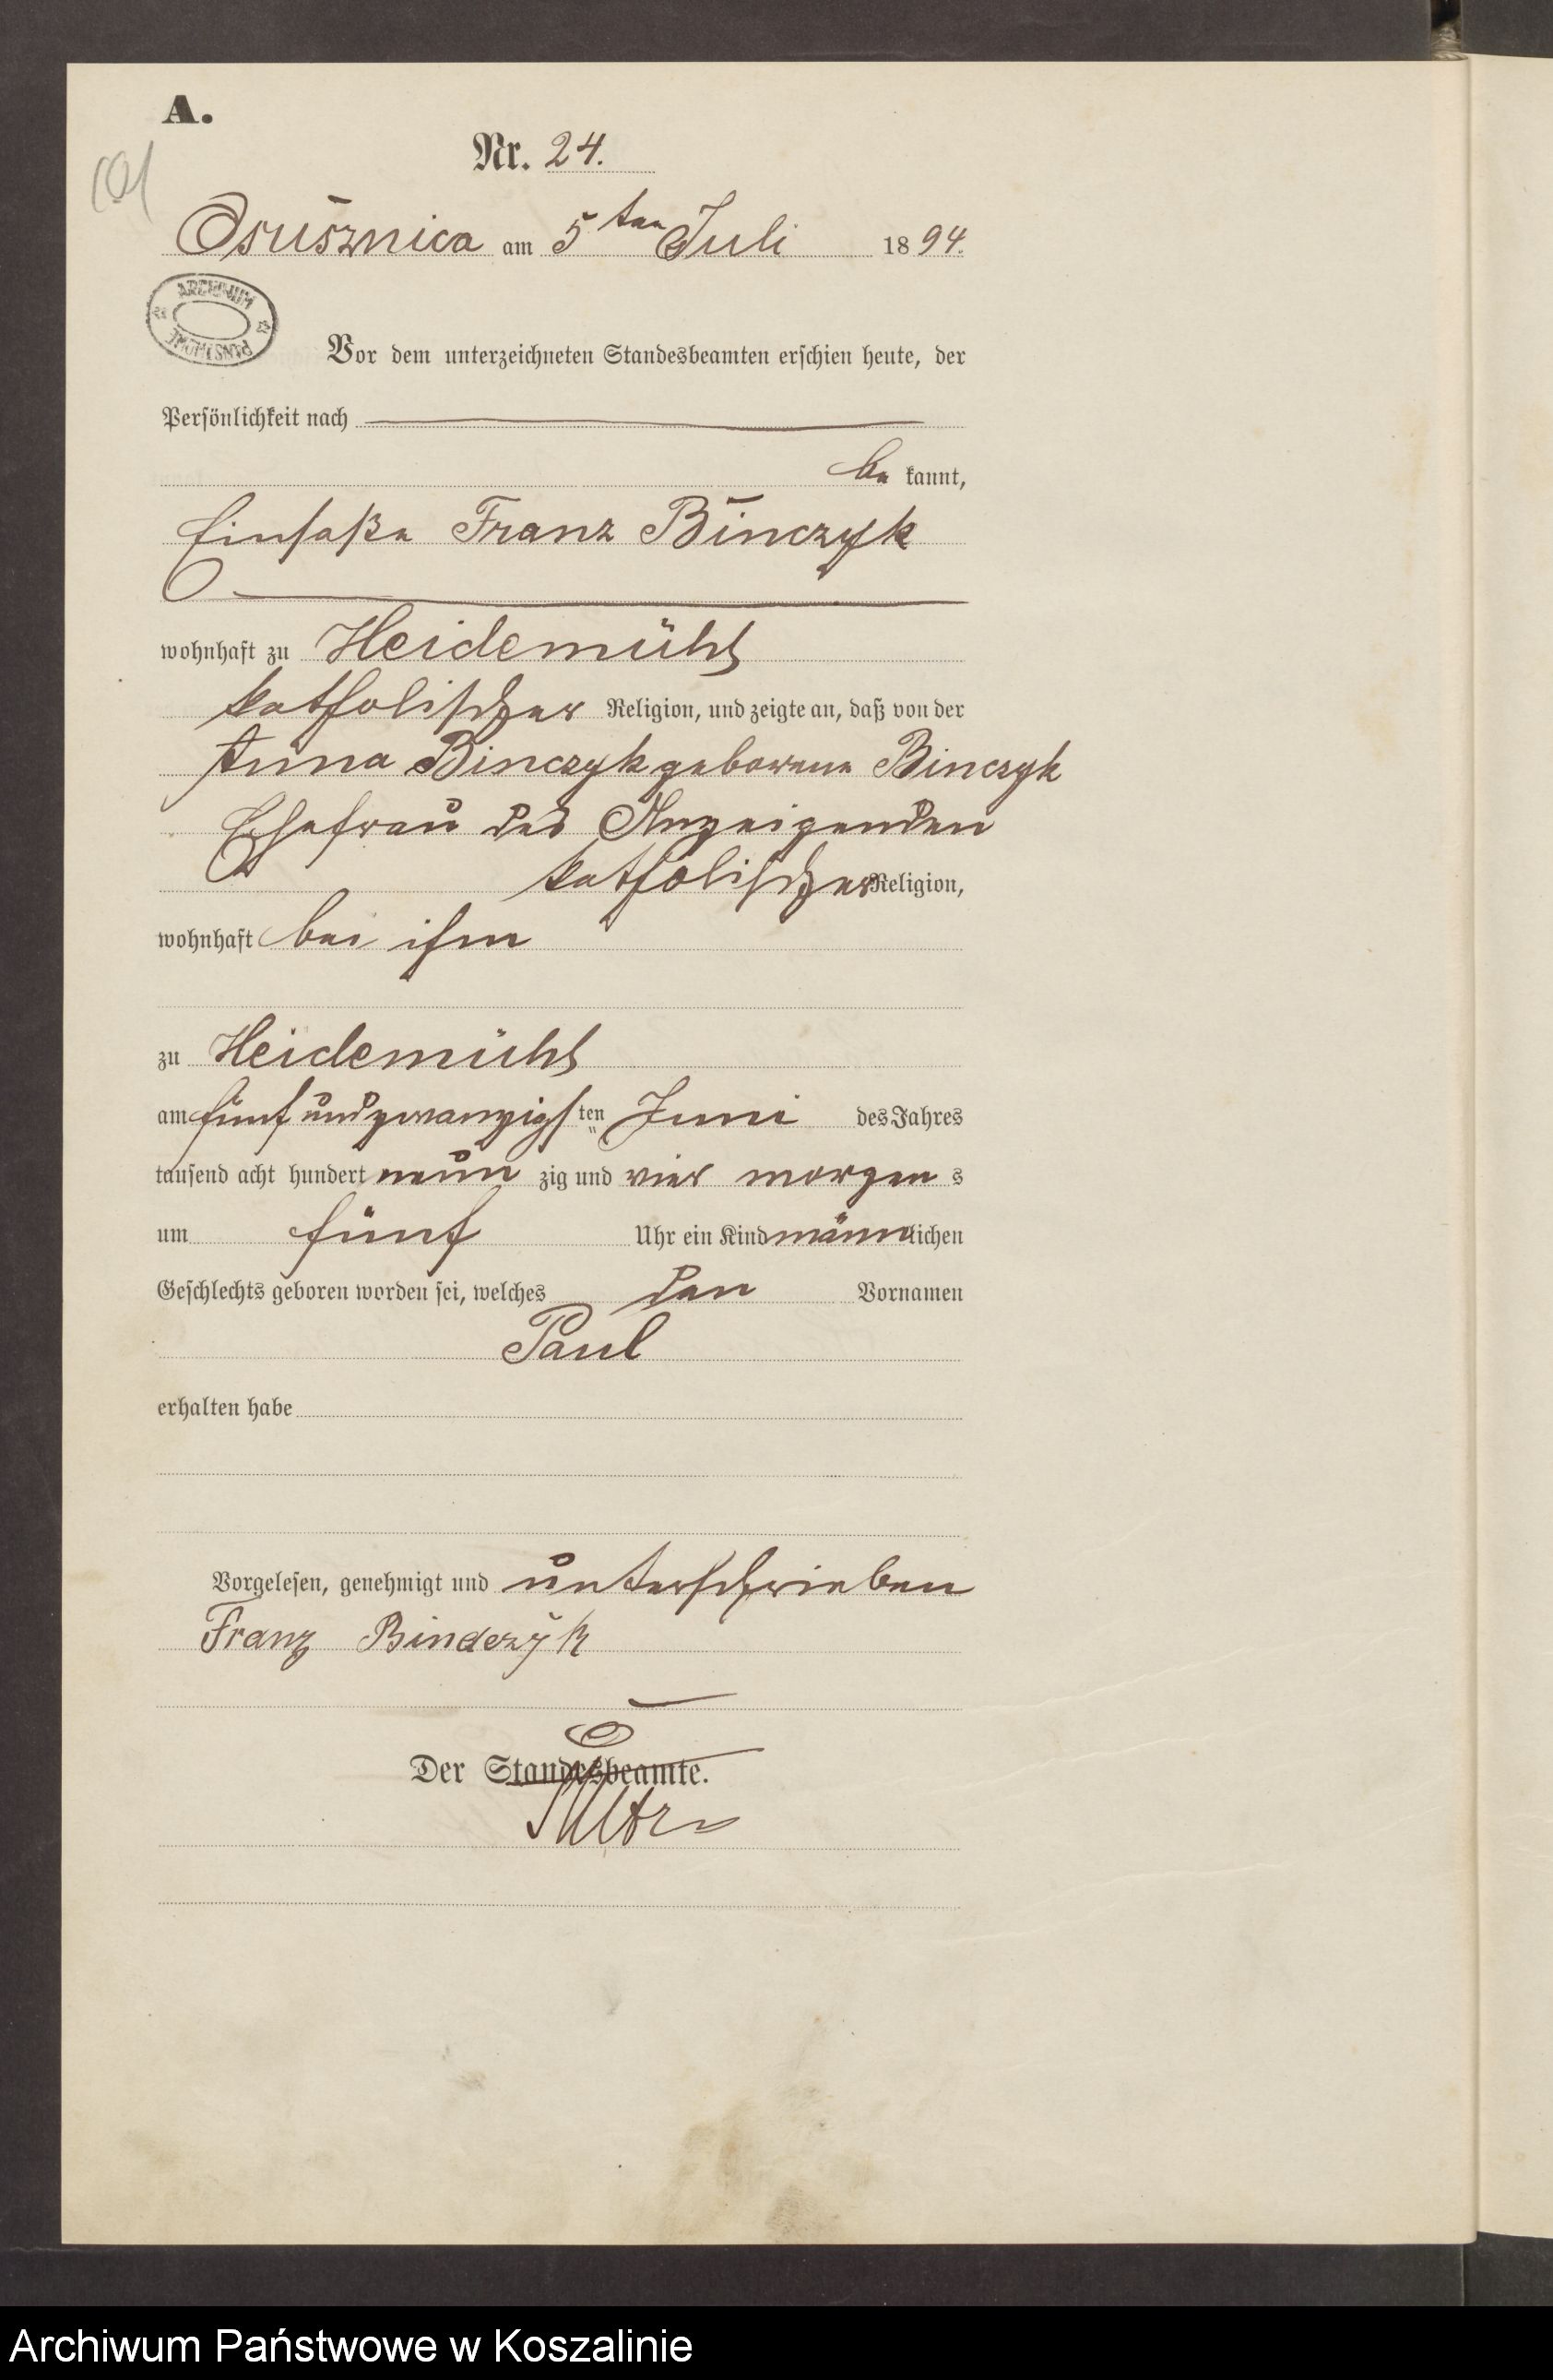 A.
Nr. 24.
101
Osusznica am 5 ten Juli 1894.
ARCHIWUM PAŃSTWOWE
Vor dem unterzeichneten Standesbeamten erschien heute, der
Persönlichkeit nach
be kannt,
Einsaße Franz Binczyk
wohnhaft zu Heidemühl
katholischer Religion, und zeigte an, daß von der
Anna Binczyk geborene Binczyk
Ehefrau des Anzeigenden
katholischer Religion,
wohnhaft bei ihm
zu Heidemühl
am fünf und zwanzigsten Juni des Jahres
tausend acht hundert neun zig und vier morgen s
um fünf Uhr ein Kind männlichen
Geschlechts geboren worden sei, welches den Vornamen
Paul
erhalten habe
Vorgelesen, genehmigt und unterschrieben
Franz Binczyk
Der Standesbeamte.
Archiwum Państwowe w Koszalinie